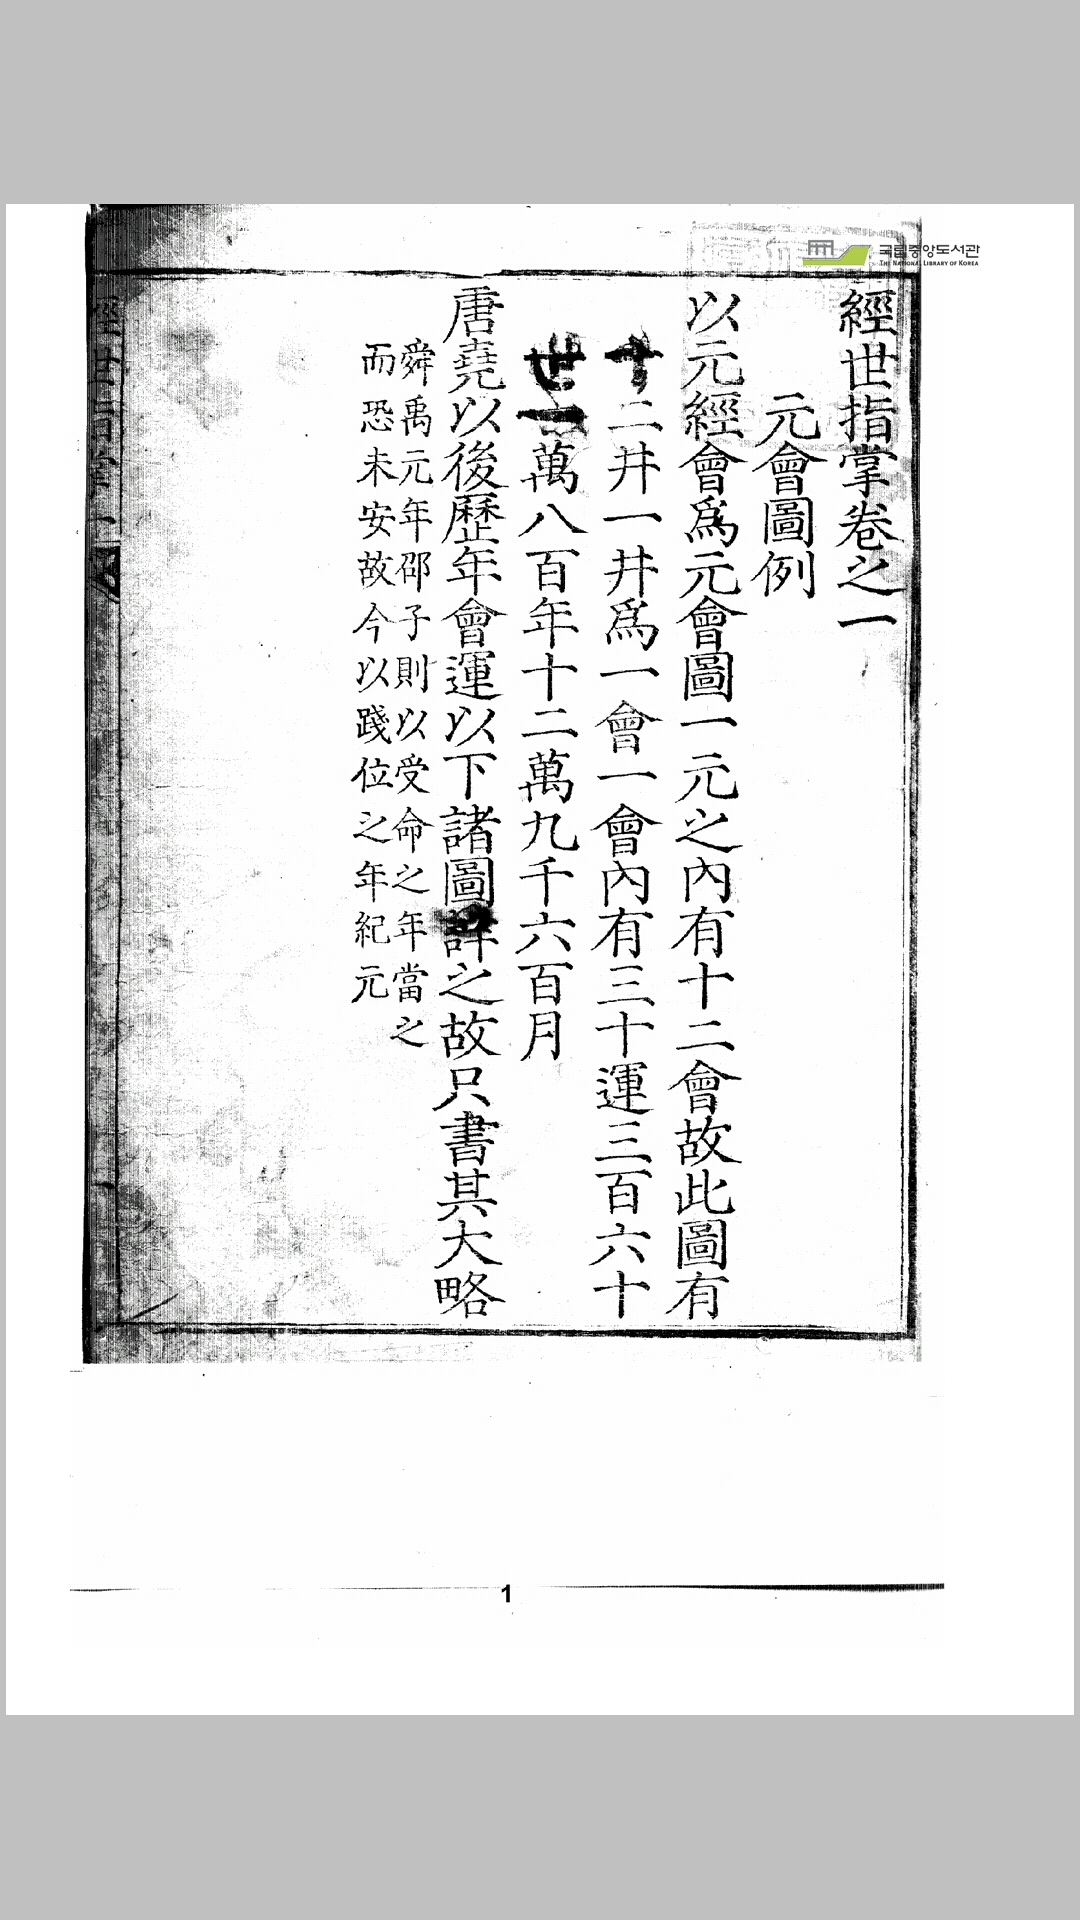 국립중앙도서관
THE NATIONAL LIBRARY OF KOREA
經世指掌卷之一
元會圖例
以元經會爲元會圖一元之內有十二會故此圖有
十二井一井爲一會一會內有三十運三百六十
世一萬八百年十二萬九千六百月
唐堯以後歷年會運以下諸圖詳之故只書其大略
舜禹元年邵子則以受命之年當之
而恐未安故今以踐位之年紀元
經世指掌一
1